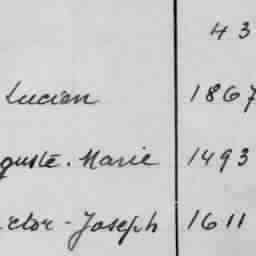 43
Lucien 1867
guste. Marie 1493
ctor - Joseph 1611